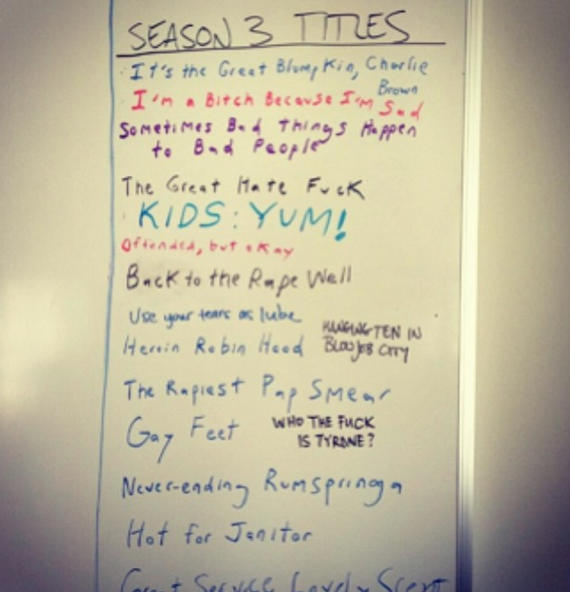 SEASON 3 TITLES
It's the Great Blumpkin, Charlie
Brown
I'm a Bitch Because I'm Sad
Sometimes Bad Things Happen
to Bad People
The Great Hate Fuck
KIDS: YUM!
Offended, but okay
Back to the Rape Well
Use your tears as lube
Heroin Robin Hood
HANGING TEN IN
BLOWJOB CITY
The Rapiest Pap Smear
Gay Feet
WHO THE FUCK
IS TYRONE?
Never-ending Rumspringa
Hot for Janitor
Great Service Lovely Scent